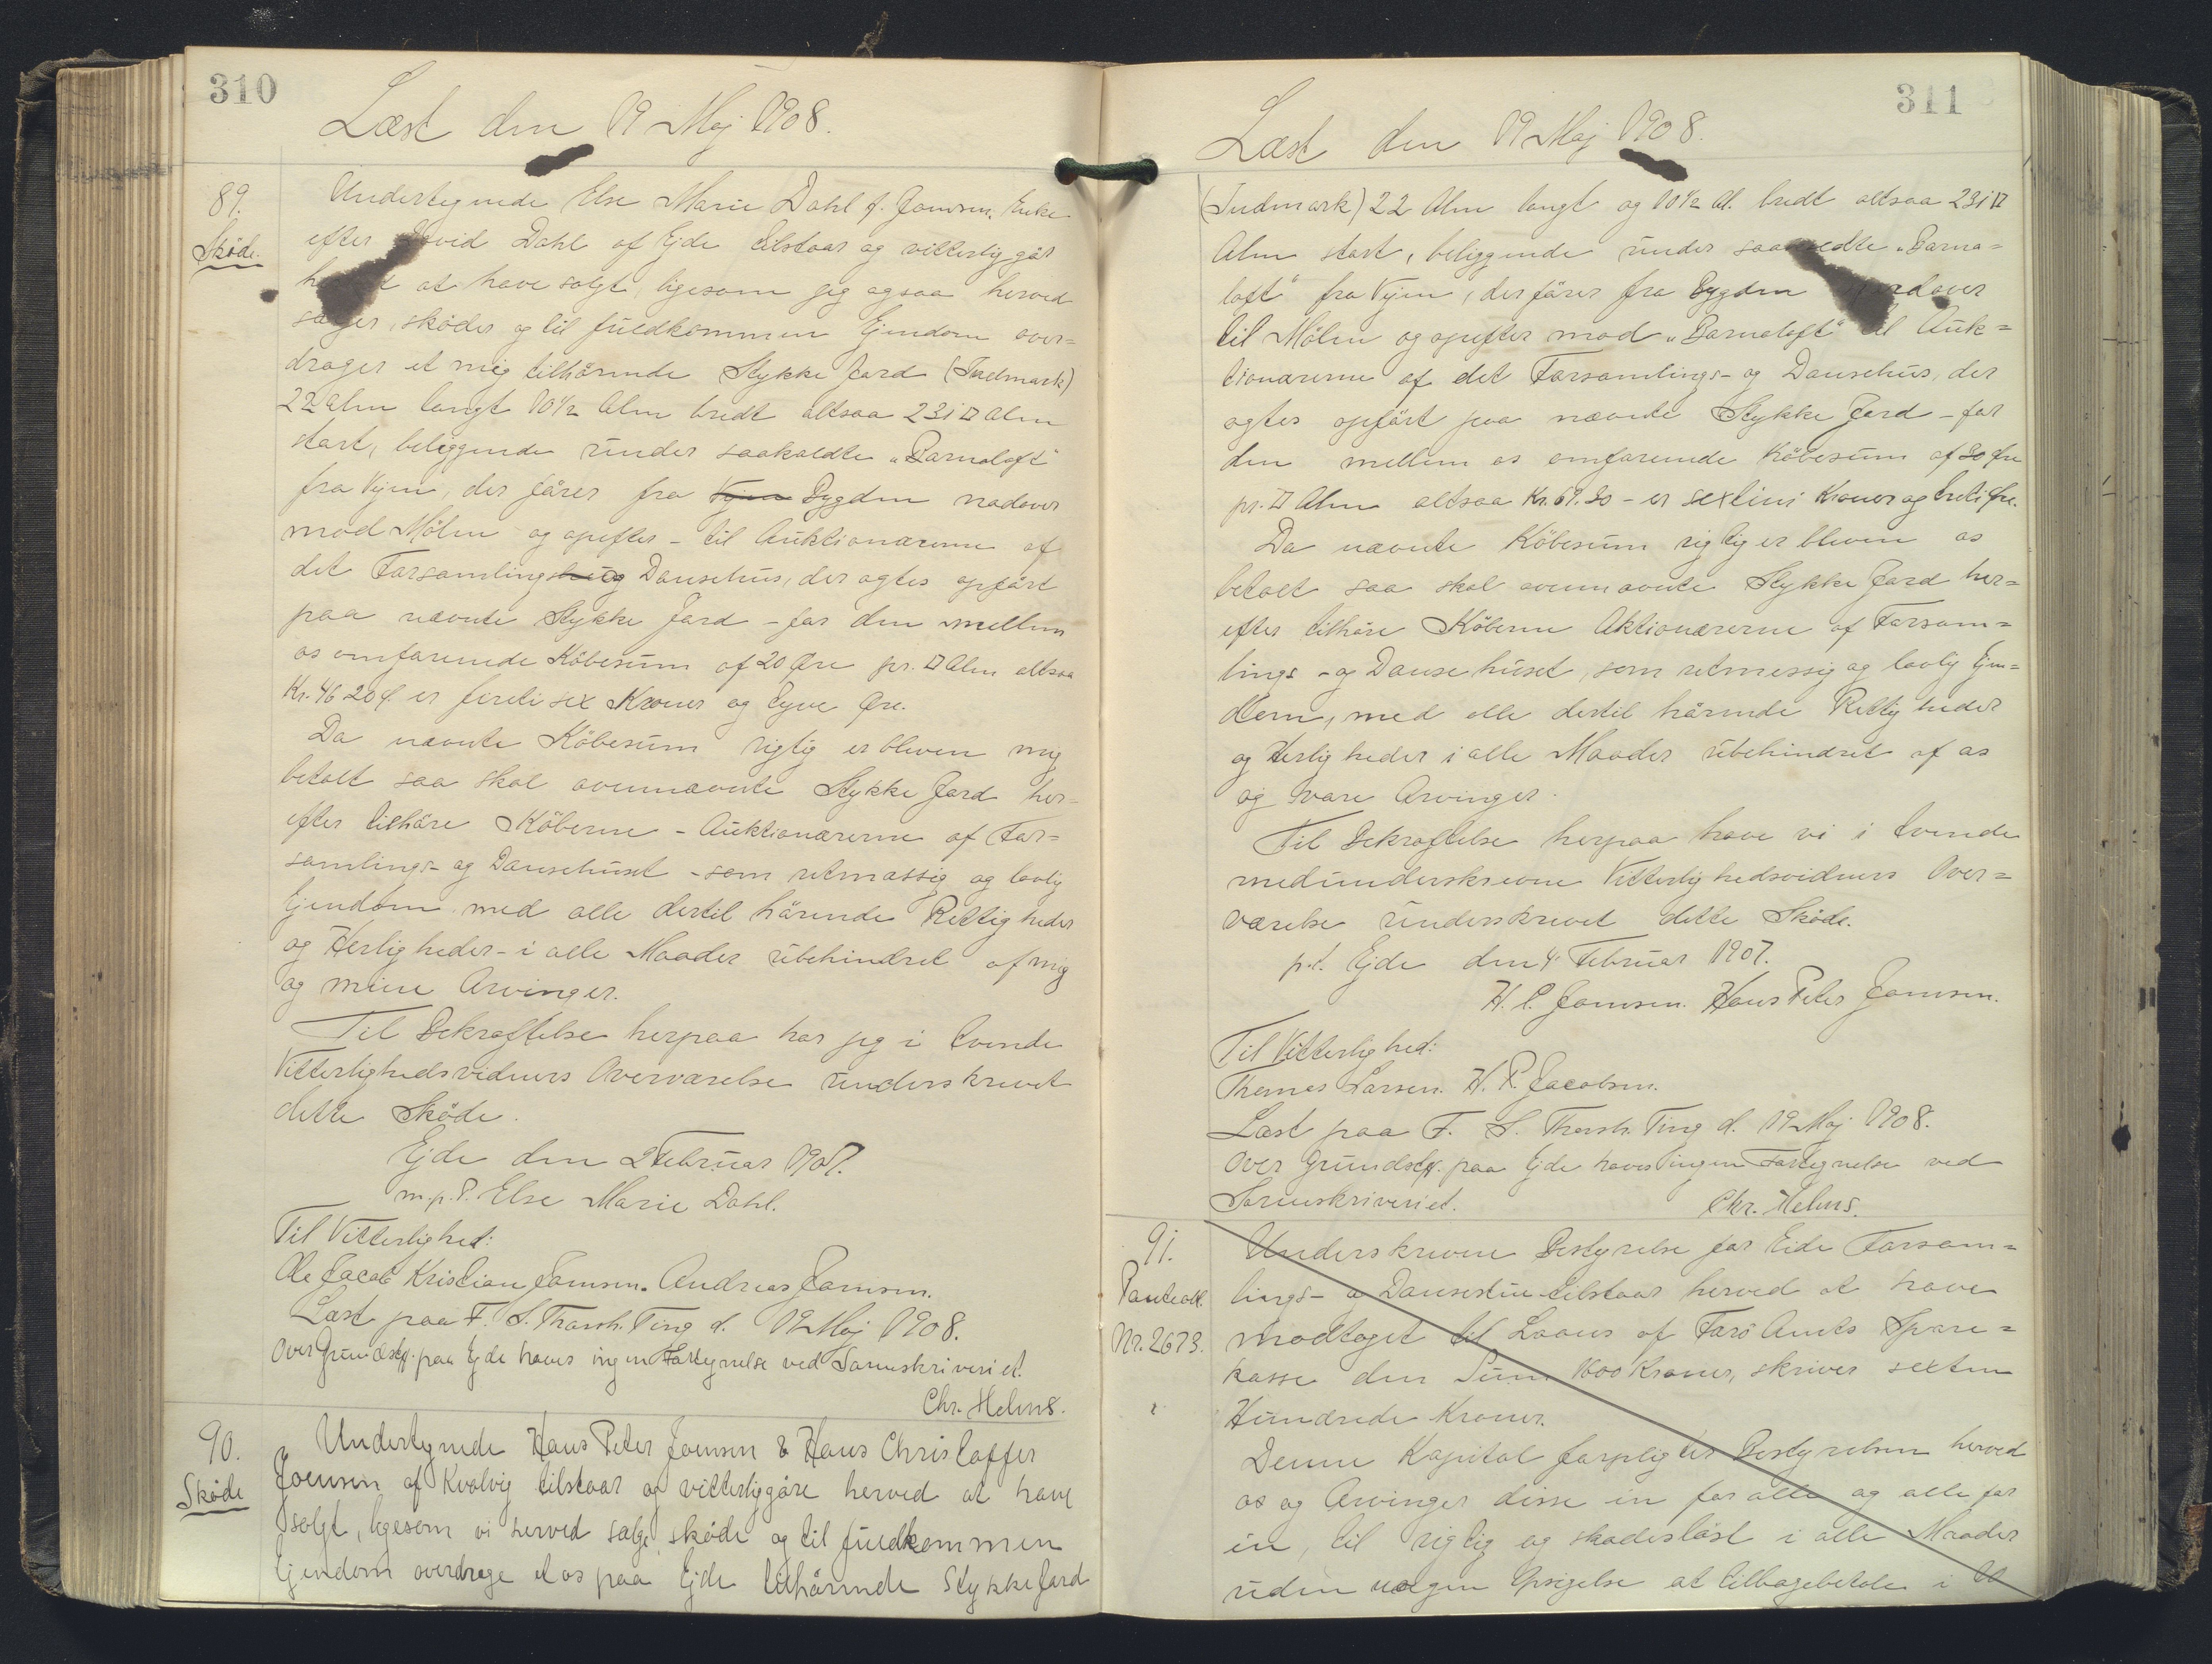 310
Læst den 19 Maj 1908.
89.
Sköde.
Undertegnede Else Marie Dahl f. Joensen, Enke
efter David Dahl af Ejde tilstaar og vitterliggör
at have solgt, ligesom jeg ogsaa herved
sælger, sköder og til fuldkommen Ejendom over=
drager et mig tilhörende Stykke Jord (Indmark)
22 Alen langt 10½ Alen bredt altsaa 231 □ Alen
stort, beliggende under saakaldte "Barnaloft"
fra Vejen, der förer fra Vejen Bygden nordover
mod Mölen og opefter - til Auktionærerne af
det Forsamlings og Dansehus, der agtes opfört
paa nævnte Stykke Jord - for den mellem
os omforenede Köbesum af 20 Öre pr. □ Alen altsaa
Kr. 46 20 Ø. er fireti sex Kroner og tyve Øre.
Da nævnte Köbesum rigtig er bleven mig
betalt saa skal ovennævnte Stykke Jord her=
efter tilhöre Köberne - Auktionærerne af For=
samlings- og Dansehuset - som retmæssig og lovlig
Ejendom med alle dertil hörende Rettigheder
og Herligheder - i alle Maader ubehindret af mig
og mine Arvinger.
Til Bekræftelse herpaa har jeg i tvende
Vitterlighedsvidners Overværelse underskrevet
dette Sköde.
Ejde den 2 Februar 1907.
m.p.P. Else Marie Dahl.
Til Vitterlighed:
Ole Jacob Kristian Joensen. Andreas Joensen.
Læst paa F. S. Thorsh. Ting d. 19 Maj 1908.
Over Grundstk. paa Ejde haves ingen Fortegnelse ved Sorenskriveriet.
Chr. Helms.
90.
Sköde
Undertegnede Hans Peter Joensen & Hans Christoffer
Joensen af Kvalvig tilstaar og vitterliggöre herved at have
solgt, ligesom vi herved sælge, sköde og til fuldkommen
Ejendom overdrage et os paa Ejde tilhörende Stykke Jord
311
Læst den 19 Maj 1908.
(Indmark) 22 Alen langt og 10½ Al. bredt altsaa 231 □
Alen stort, beliggende under saakaldte "Barna=
loft" fra Vejen, der förer fra Bygden nordover
til Mölen og opefter mod "Barnaloft" til Auk=
tionærerne af det Forsamlings- og Dansehus, der
agtes opfört paa nævnte Stykke Jord - for
den mellem os omforenede Köbesum af 30 Øre
pr. □ Alen altsaa Kr. 69.30 - er sextini Kroner og treti Øre.
Da nævnte Köbesum rigtig er bleven os
betalt saa skal ovennævnte Stykke Jord her=
efter tilhöre Köberne Aktionærerne af Forsam=
lings- og Dansehuset, som retmessig og lovlig Ejen=
dom, med alle dertil hörende Rettigheder
og Herligheder i alle Maader ubehindret af os
og vore Arvinger.
Til Bekræftelse herpaa have vi i tvende
medunderskrevne Vitterlighedsvidners Over=
værelse underskrevet dette Sköde.
p.t. Ejde den 4. Februar 1907.
H. C. Joensen. Hans Peter Joensen.
Til Vitterlighed:
Thomas Larsen. H. P. Jacobsen.
Læst paa F. S. Thorsh. Ting d. 19 Maj 1908.
Over Grundstk. paa Ejde haves ingen Fortegnelse ved
Sorenskriveriet.
Chr. Helms.
91.
Panteobl.
Nr. 2673.
Underskrevne Bestyrelse for Eide Forsam=
lings- og Dansestue tilstaar herved at have
modtaget til Laans af Færö Amts Spare=
kasse den Sum 1600 Kroner, skriver sexten
Hundrede Kroner.
Denne Kapital forpligter Bestyrelsen herved
os og Arvinger disse en for alle og alle for
en, til rigtig og skadeslöst i alle Maader
uden nogen Opsigelse at tilbagebetale i